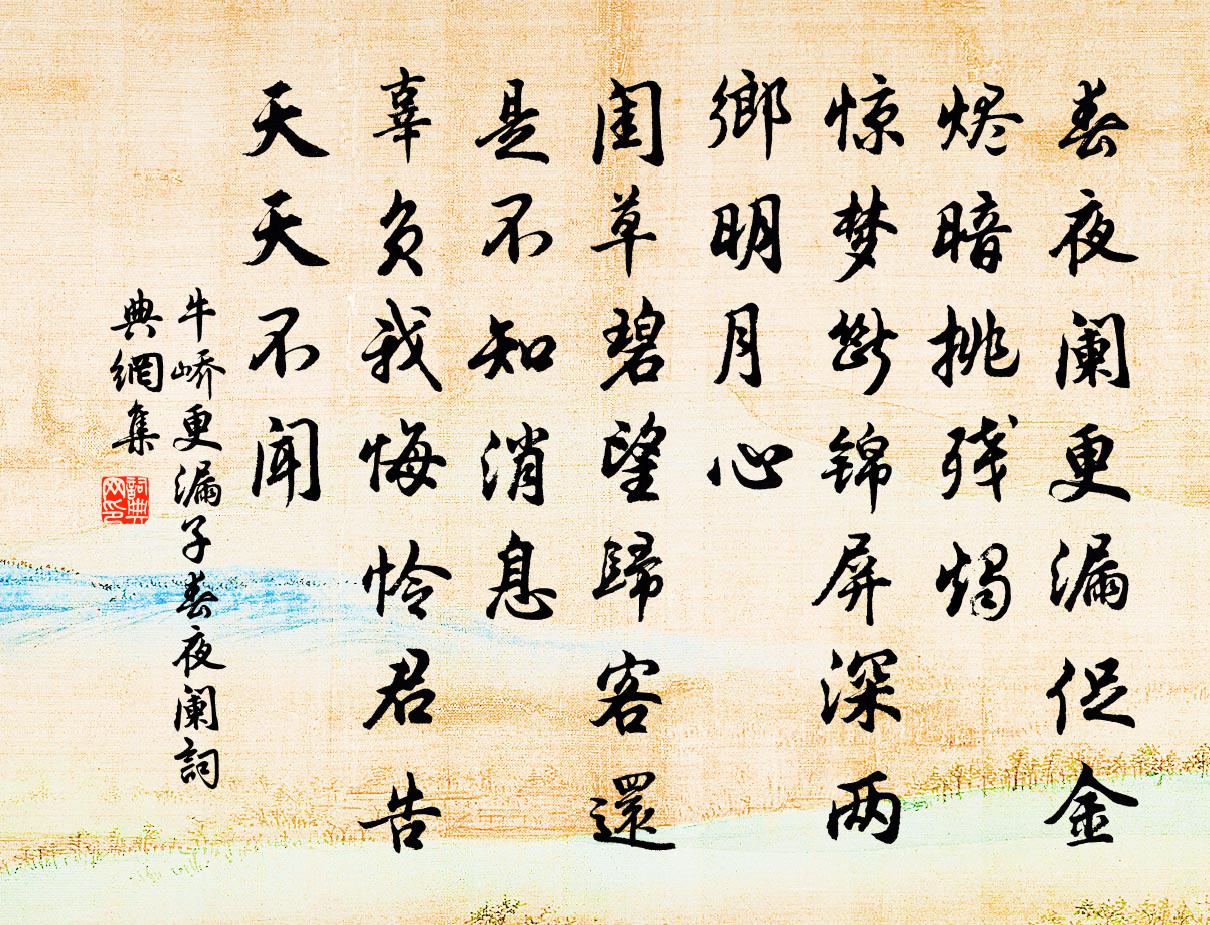 春夜阑更漏促金
烬暗挑残烛
惊梦断锦屏深两
鄉明月心
闺草碧望歸客還
是不知消息
辜负我悔怜君告
天天不闻
牛峤更漏子春夜阑詞
典網集
詞典网印